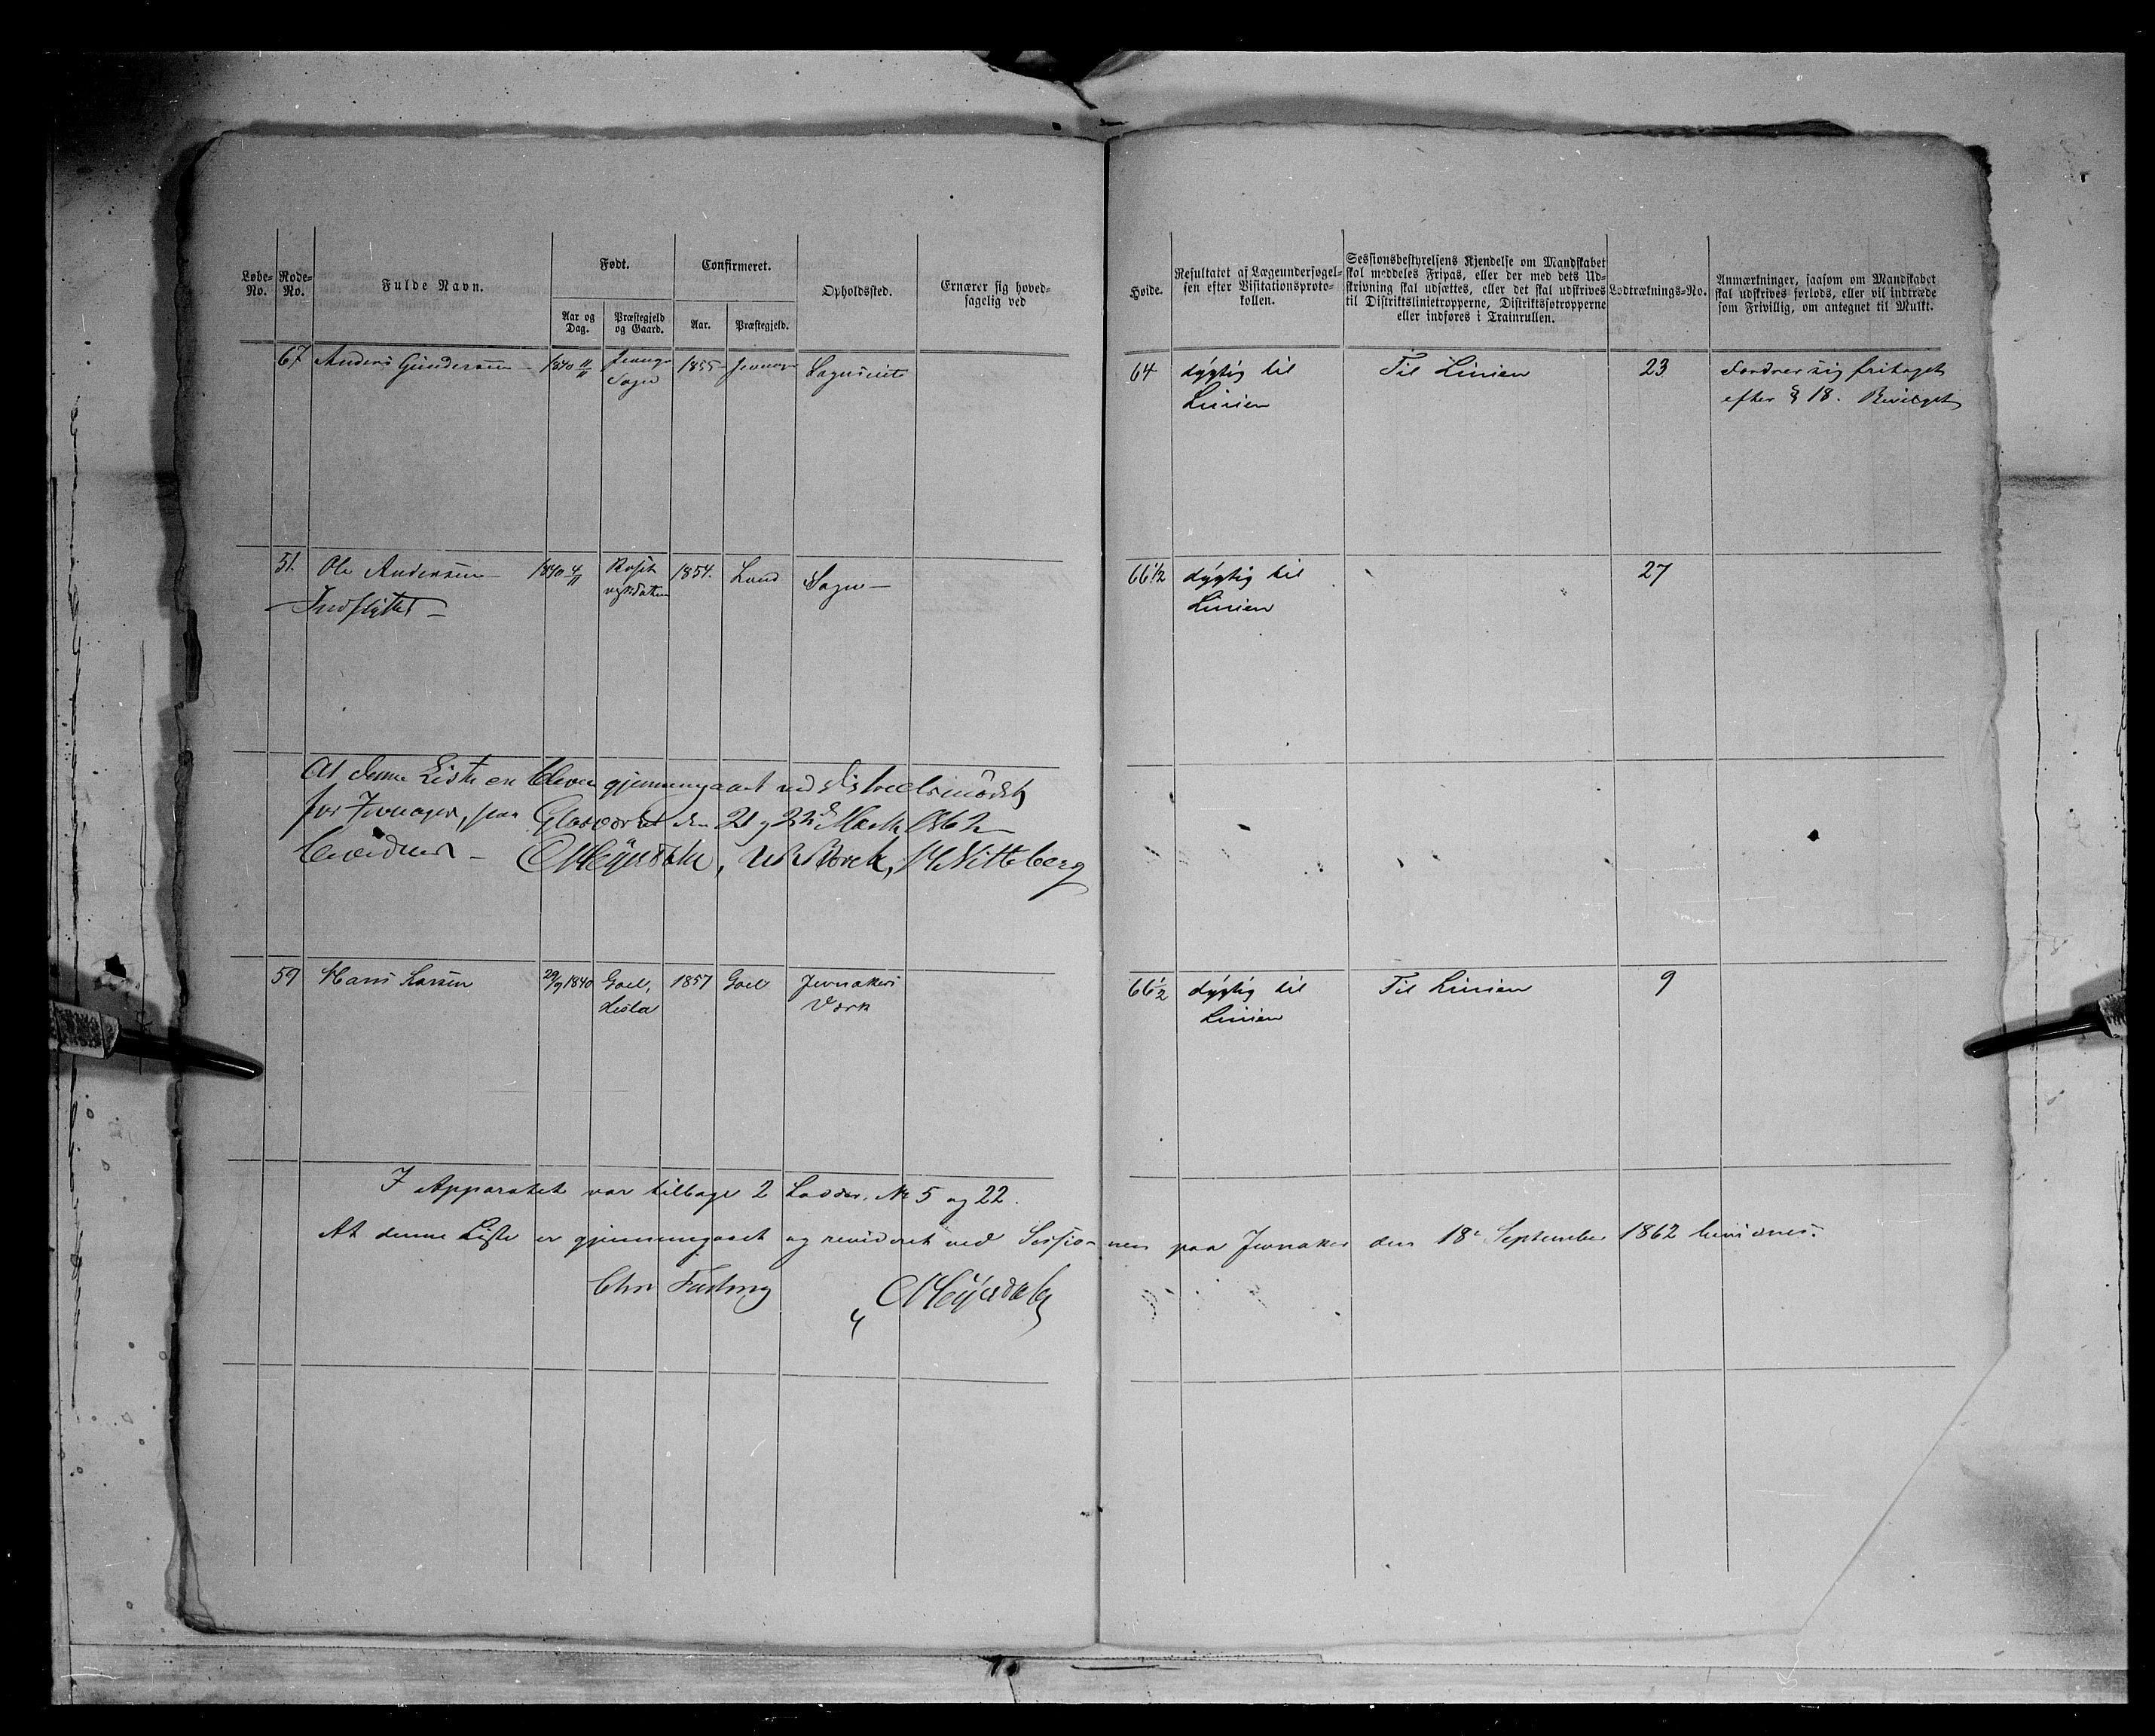 Løbe-No. Rode-No. Fulde Navn. Født. Confirmeret. Opholdssted. Ernærer sig hoved-sagelig ved
Aar og Dag. Præstegjeld og Gaard. Aar. Præstegjeld.
Høide. Resultatet af Lægeundersøgel-sen efter Visitationsproto-kollen. Sessionsbestyrelsens Kjendelse om Mandskabet skal meddeles Fripas, eller der med dets Ud-skrivning skal udsættes, eller det skal udskrives til Distriktslinietropperne, Distriktssøtropperne eller indføres i Trainrullen. Lodtræknings-No. Anmærkninger, saasom om Mandskabet skal udskrives forlods, eller vil indtræde som Frivillig, om antegnet til Mulkt.
67 Anders Gundersen 1840 11/11 1855 64 dygtig til Til Linien 23 Fordres sig fritaget
Sogn Linien efter § 18. Bevilget
51. Ole Andersen 1840 4/11 1854. Land Sogn 66 1/2 dygtig til 27
Indflyttet Linien
At denne Liste er bleven gjennemgaaet ved
for Jevnager, paa Glasværket den 21 og 22d Marts 1862
bevidnes
59 Hans Larsen 29/9 1840 Goel, 1857 Goel Jevnakers 66 1/2 dygtig til Til Linien 9
Hesla Værk Linien
I Apparatet var tilbage 2 Lodder, No 5 og 22.
At denne Liste er gjennemgaaet og revideret ved Sessionen paa Jevnaker den 18de September 1862 bevidnes.
Chr Fasting